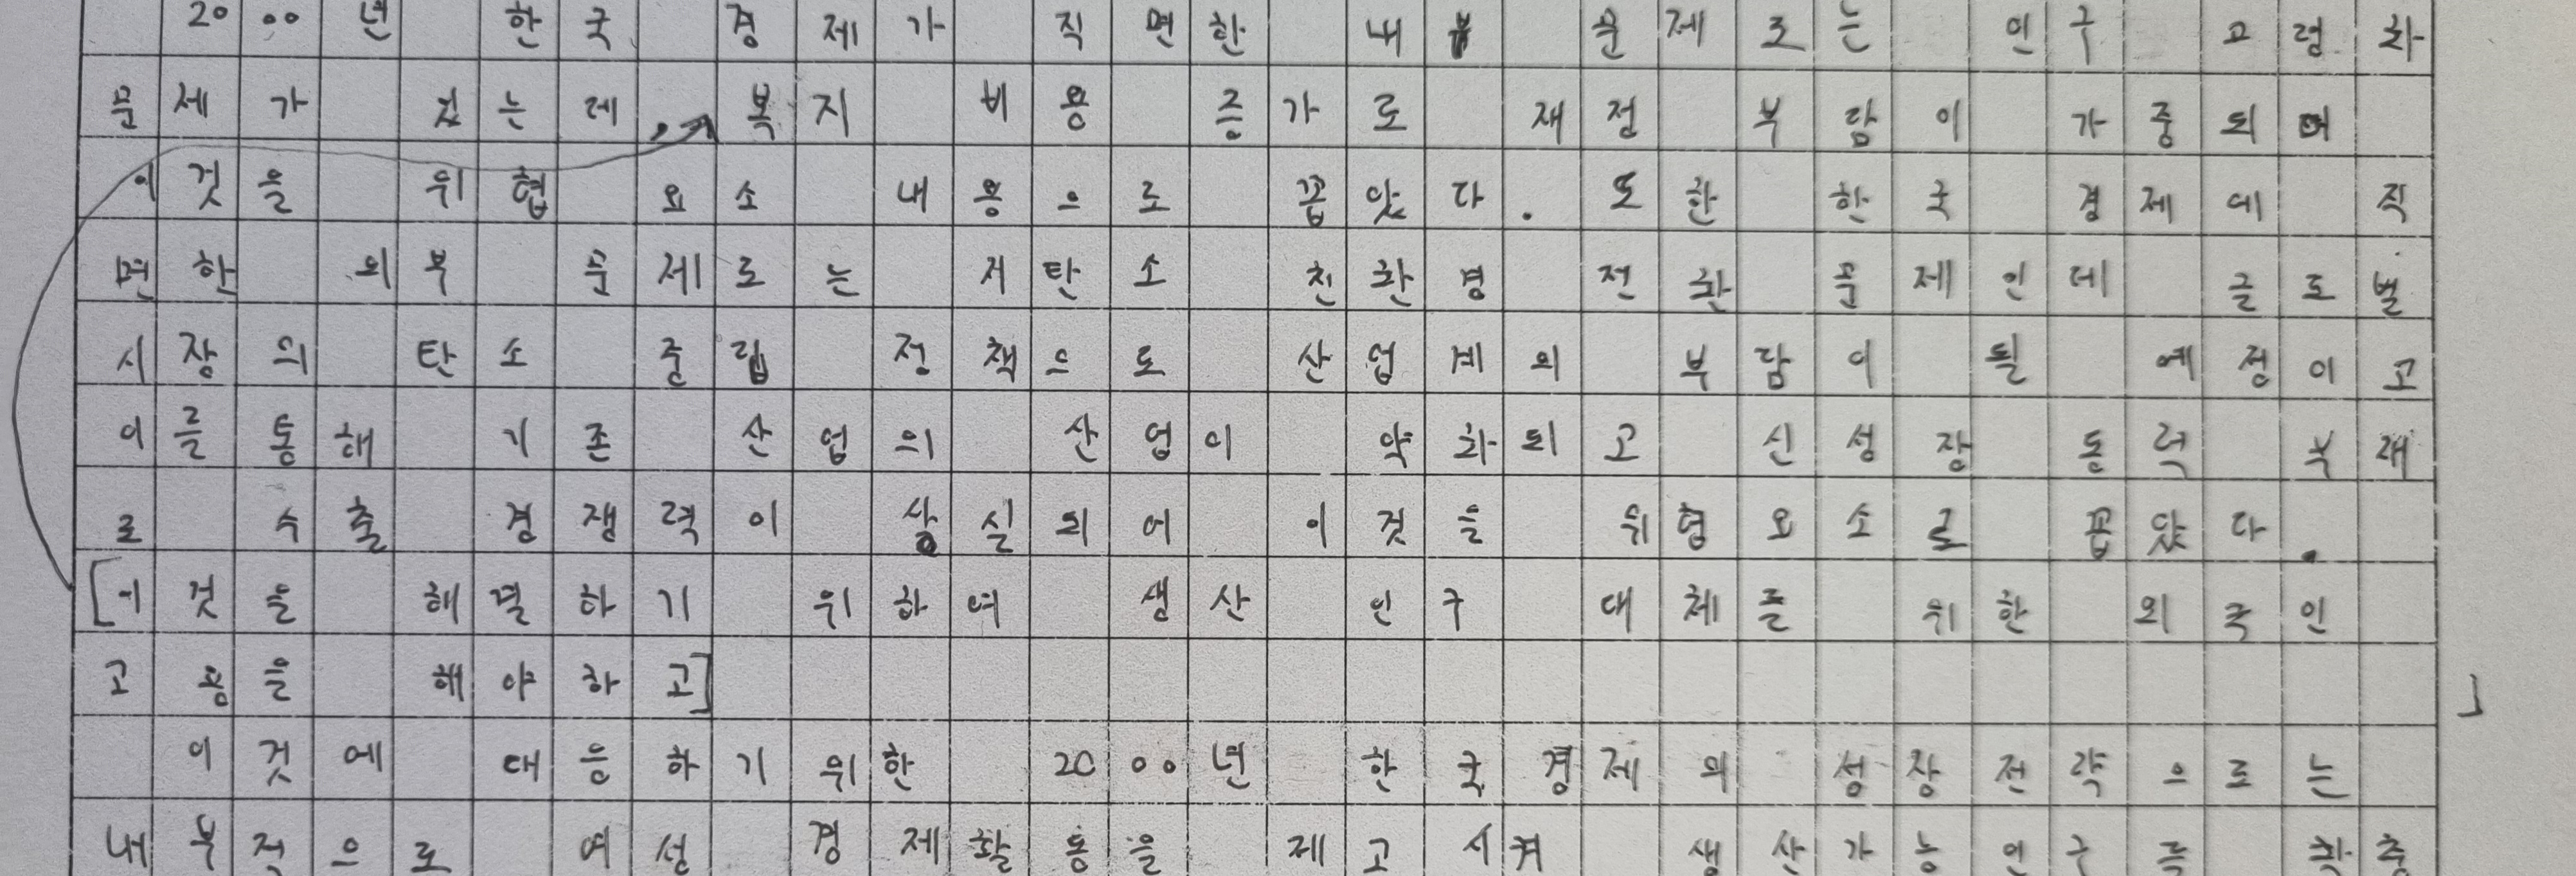 2000년 한국 경제가 직면한 내부 문제로는 인구 고령화
문제가 있는데, 복지 비용 증가로 재정 부담이 가중되며
이것을 위협 요소 내용으로 꼽았다. 또한 한국 경제에 직
면한 외부 문제로는 저탄소 친환경 전환 문제인데 글로벌
시장의 탄소 중립 정책으로 산업계의 부담이 될 예정이고
이를 통해 기존 산업의 산업이 약화되고 신성장 동력 부재
로 수출 경쟁력이 상실되어 이것을 위협요소로 꼽았다.
[이것을 해결하기 위하여 생산 인구 대체를 위한 외국인
고용을 해야하고]
이것에 대응하기 위한 2000년 한국경제의 성장전략으로는
내부적으로 여성 경제활동을 제고시켜 생산가능인구를 확충